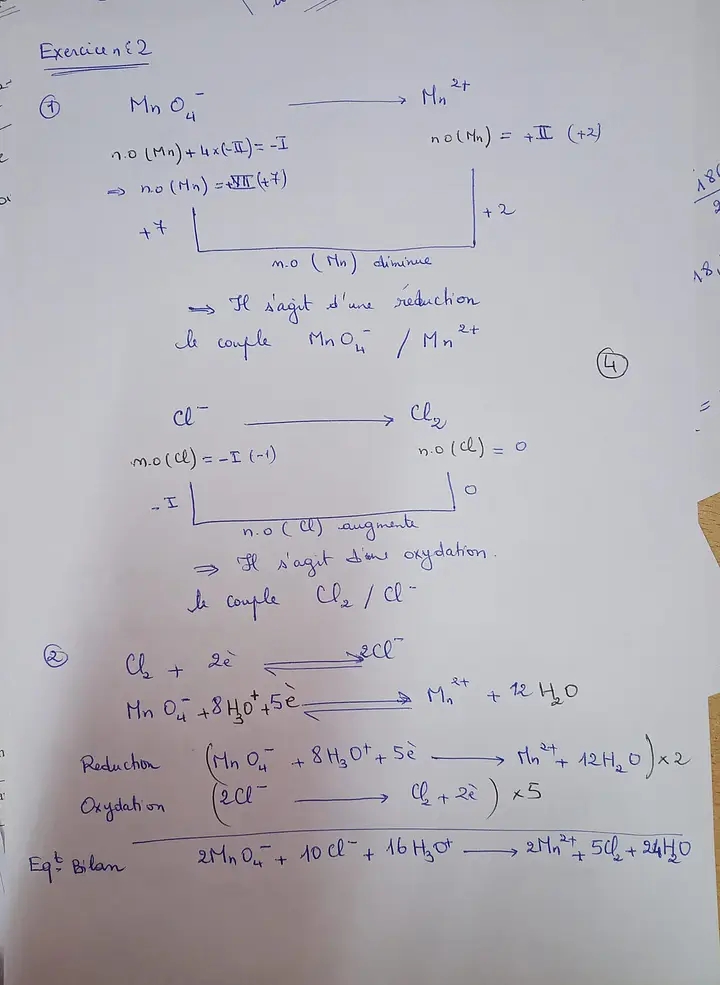 Exercice n°2
① MnO₄⁻ ⟶ Mn²⁺
n.o (Mn) + 4×(-II) = -I
n.o (Mn) = +II (+2)
⇒ n.o (Mn) = +VII (+7)
+7
+2
n.o (Mn) diminue
⇒ Il s'agit d'une réduction
le couple MnO₄⁻ / Mn²⁺
④
Cl⁻ ⟶ Cl₂
n.o (Cl) = -I (-1)
n.o (Cl) = 0
-I
0
n.o (Cl) augmente
⇒ Il s'agit d'une oxydation.
le couple Cl₂ / Cl⁻
② Cl₂ + 2è ⇌ 2Cl⁻
MnO₄⁻ + 8H₃O⁺ + 5è ⇌ Mn²⁺ + 12 H₂O
Reduction (MnO₄⁻ + 8H₃O⁺ + 5è ⟶ Mn²⁺ + 12H₂O) ×2
Oxydation (2Cl⁻ ⟶ Cl₂ + 2è) ×5
Eqᵗ: Bilan 2MnO₄⁻ + 10Cl⁻ + 16H₃O⁺ ⟶ 2Mn²⁺ + 5Cl₂ + 24H₂O